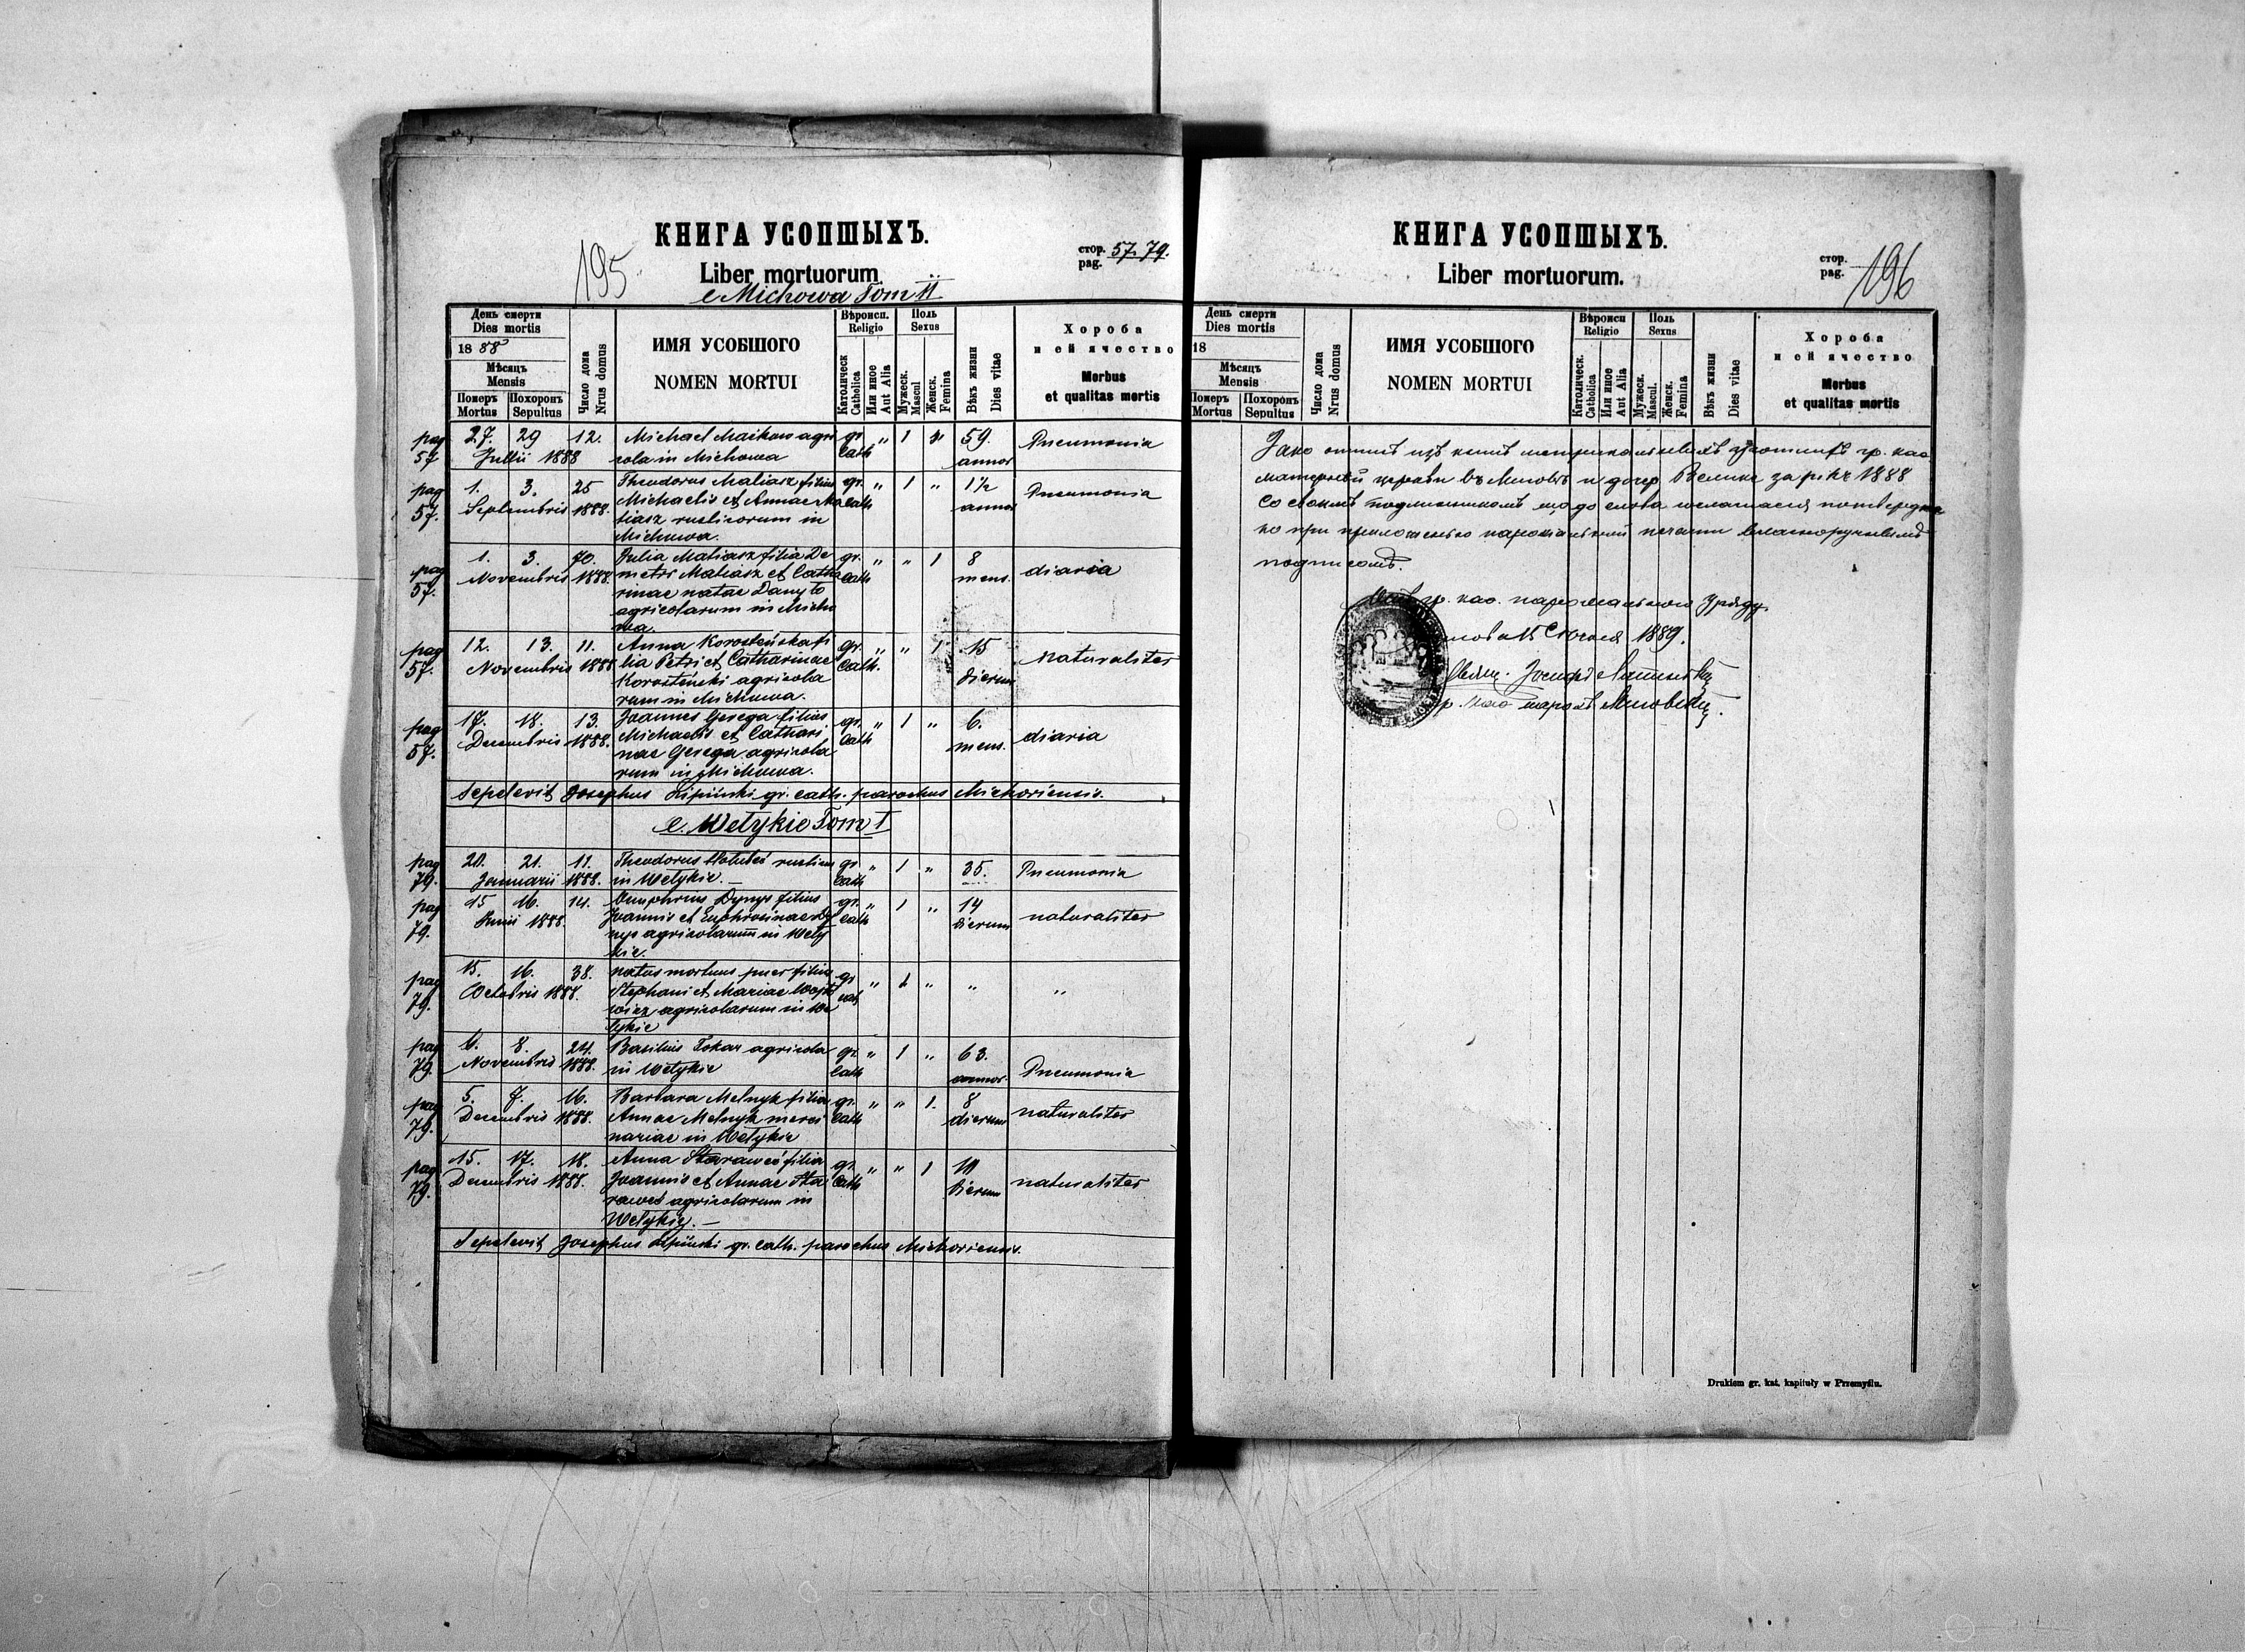 КНИГА УСОПШЫХЪ.
195
стор. pag. 57. 79.
Liber mortuorum
e Michowa Tom II
День смерти
Dies mortis
18 88
Мѣсяць
Mensis
Померъ Mortus
Похоронъ Sepultus
Число дома
Nrus domus
ИМЯ УСОБШОГО
NOMEN MORTUI
Вѣроисп.
Religio
Католическ
Catholica
Или иное
Aut Alia
Поль
Sexus
Мужеск.
Mascul
Женск.
Femina
Вѣкъ жизни
Dies vitae
Хороба
и ей ячество
Morbus
et qualitas mortis
pag 57 27. 29 12. Michael Maikow agri gr. " 1 " 59. Pneumonia
Julii 1888 cola in Michowa cath annor
pag 57. 1. 3. 25 Theodorus Maliasz filius gr. " 1 " 1½ Pneumonia
Septembris 1888. Michaelis et Annae Ma cath annor
liasz rusticorum in
Michowa.
pag 57. 1. 3. 70. Julia Maliasz filia De gr. " " 1 8 diaria
Novembris 1888. metri Maliasz et Catha cath mens.
rinae natae Danyło
agricolarum in Micho
wa.
pag 57. 12. 13. 11. Anna Korosteńska fi gr. " " 1 15 naturaliter
Novembris 1888 lia Petri et Catharinae cath. dierum
Korosteński agricola
rum in Michowa.
pag 57. 17. 18. 13. Joannes Gerega filius gr. " 1 " 6. diaria
Decembris 1888. Michaelis et Cathari cath mens.
nae Gerega agricola
rum in Michowa.
Sepelevit Josephus Lipiński gr. cath. parochus Michoviensis.
e. Wełykie Tom I
pag 79. 20. 21. 11. Theodorus rusticus gr. " 1 " 35. Pneumonia
Januarii 1888. in Wełykie. cath
pag 79. 15 16. 14. Onuphrius Dynys filius gr. " 1 " 14 naturaliter
Junii 1888. Joannis et Euphrosinae Dy cath dierum
nys agricolarum in Weły
kie.
pag 79. 15. 16. 38. natus mortuus puer filius gr. " 1 " " "
Octobris 1888. Stephani et Mariae Wojto cath
wicz agricolarum in We
łykie
pag 79. 6. 8. 24. Basilius Tokar agricola gr. " 1 " 63. Pneumonia
Novembris 1888. in Wełykie cath annor.
pag 79. 5. 7. 16. Barbara Melnyk filia gr. " " 1. 8 naturaliter
Decembris 1888. Annae Melnyk merce cath dierum
nariae in Wełykie
pag 79. 15. 17. 18. Anna filia gr. " " 1 naturaliter
Decembris 1888. Joannis et Annae cath dierum
agricolarum in
Wełykie.
Sepelevit Josephus Lipiński gr. cath. parochus Michoviensis.
КНИГА УСОПШЫХЪ.
стор. pag. 196
Liber mortuorum.
День смерти
Dies mortis
18
Мѣсяць
Mensis
Померъ Mortus
Похоронъ Sepultus
Число дома
Nrus domus
ИМЯ УСОБШОГО
NOMEN MORTUI
Вѣроисп
Religio
Католическ.
Catholica
Или иное
Aut Alia
Поль
Sexus
Мужеск.
Mascul.
Женск.
Femina
Вѣкъ жизни
Dies vitae
Хороба
и ей ячество
Morbus
et qualitas mortis
Яко изъ книгъ гр. као.
церкви въ Миховѣ и дочер. Велике за рікъ 1888
со що до слова
но при печати
подписомъ.
гр. као. уряду
1889.
Іосифъ
Drukiem gr. kat. kapituły w Przemyślu.